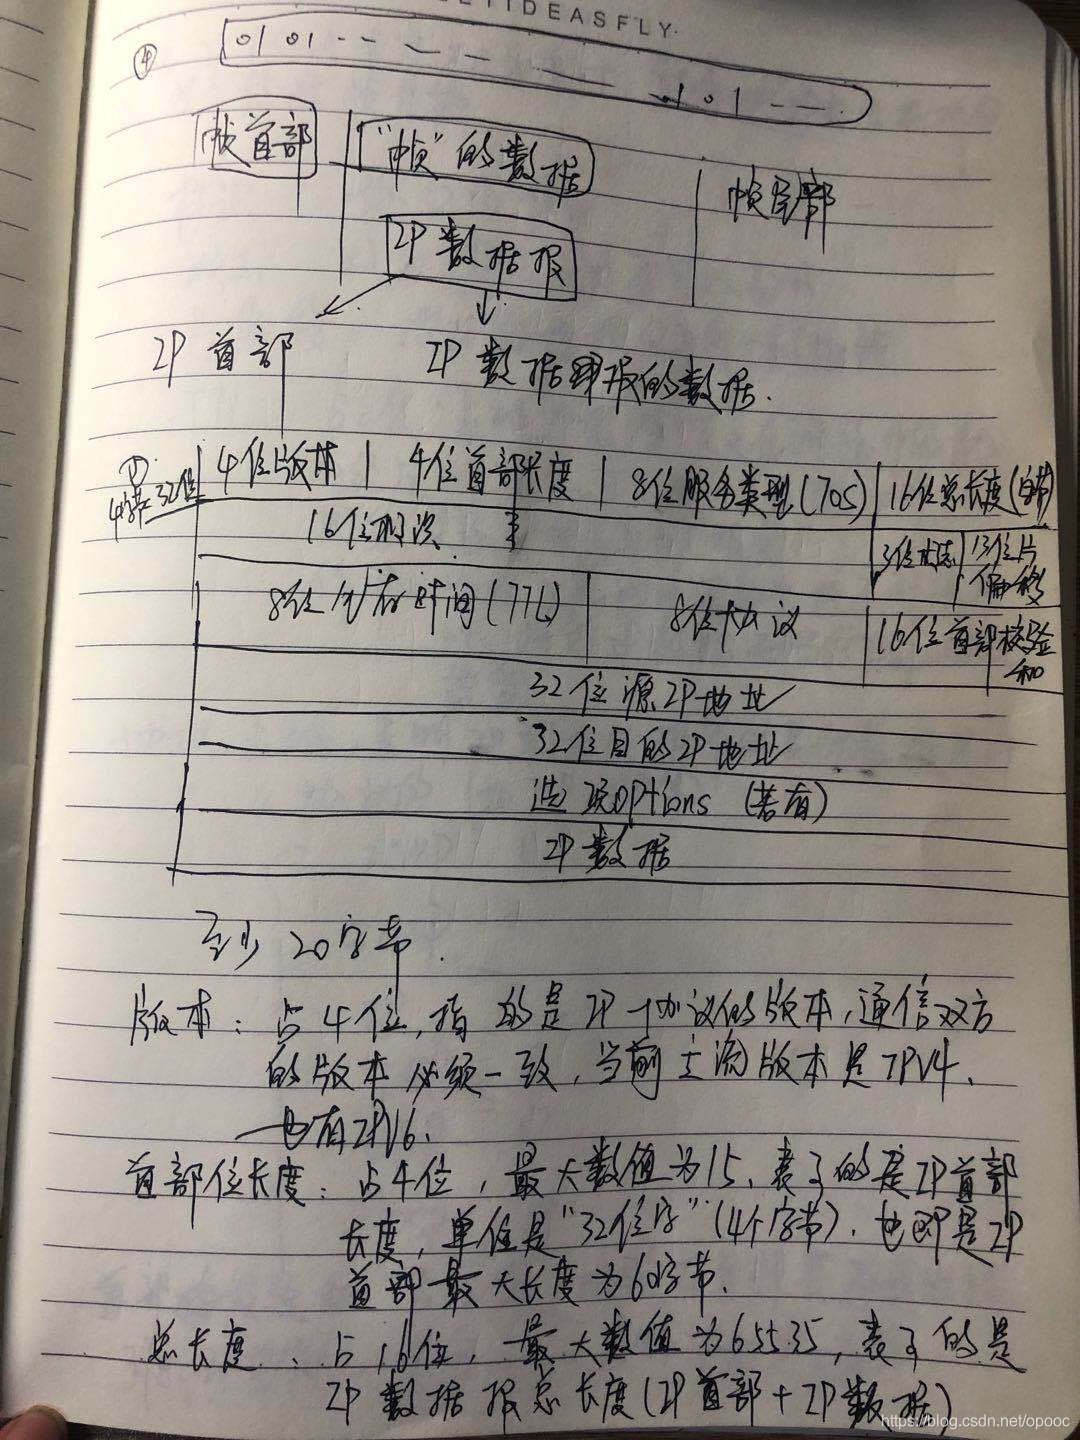 ETIDEASFLY
④ 0101-- — — — — 101 -- —
帧首部 "帧"的数据 帧尾部
IP数据报
IP首部 IP数据报的数据.
① 4位版本 | 4位首部长度 | 8位服务类型(TOS) | 16位总长度(字节)
4字节 32位
16位标识 3位标志 13位片偏移
8位生存时间(TTL) 8位协议 16位首部校验和
32位源IP地址
32位目的IP地址
选项options (若有)
IP数据
至少20字节.
版本: 占4位,指的是IP协议的版本,通信双方
的版本必须一致,当前主流版本是IPV4、
也有IPV6.
首部位长度: 占4位,最大数值为15、表示的是IP首部
长度,单位是"32位字"(4个字节).也即是IP
首部最大长度为60字节.
总长度: 占16位,最大数值为65535,表示的是
IP数据报总长度(IP首部+IP数据)
https://blog.csdn.net/opooc